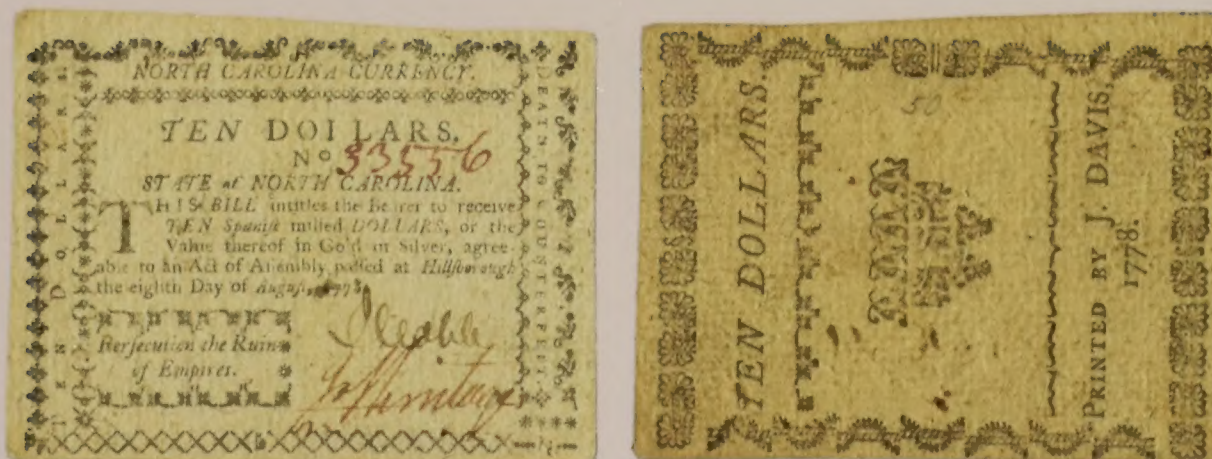 NORTH CAROLINA CURRENCY.
TEN DOLLARS.
No 33556
STATE of NORTH CAROLINA.
THIS BILL intitles the Bearer to receive
TEN Spanish milled DOLLARS, or the
Value thereof in Gold or Silver, agree-
able to an Act of Assembly passed at Hillsborough
the eighth Day of August, 1778.
Persecution the Ruin
of Empires.
TEN DOLLARS.
DEATH TO COUNTERFEIT.
TEN DOLLARS.
50
PRINTED BY J. DAVIS,
1778.